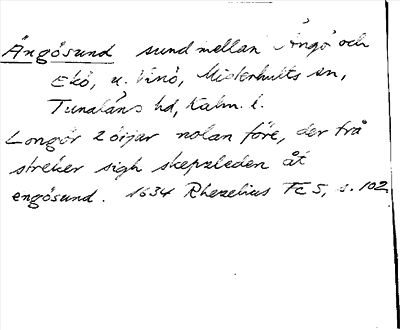 Ängösund sund mellan Ängö och
Ekö, u. Vinö, Misterhults sn,
Tunaläns hd, Kalm. l.
Longör 2 öijar nolan före, der frå
streker sigh skepzleden åt
engösund. 1634 Rhezelius Fc 5, s. 102